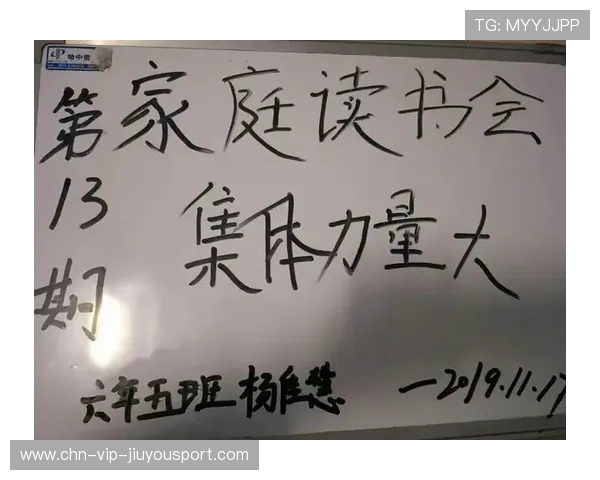 TG: MYYJJPP
哈中信
第13期
家庭读书会
集体力量大
六年五班 杨佳慧 —2019.11.17
www.chn-vip-jiuyousport.com